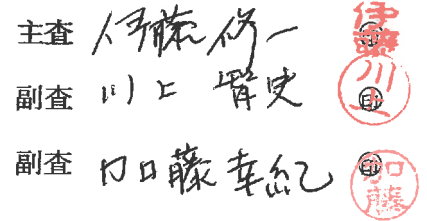 主査 伊藤 修一 印 伊藤
副査 川上 賢史 印 川上
副査 加藤 幸紀 印 加藤